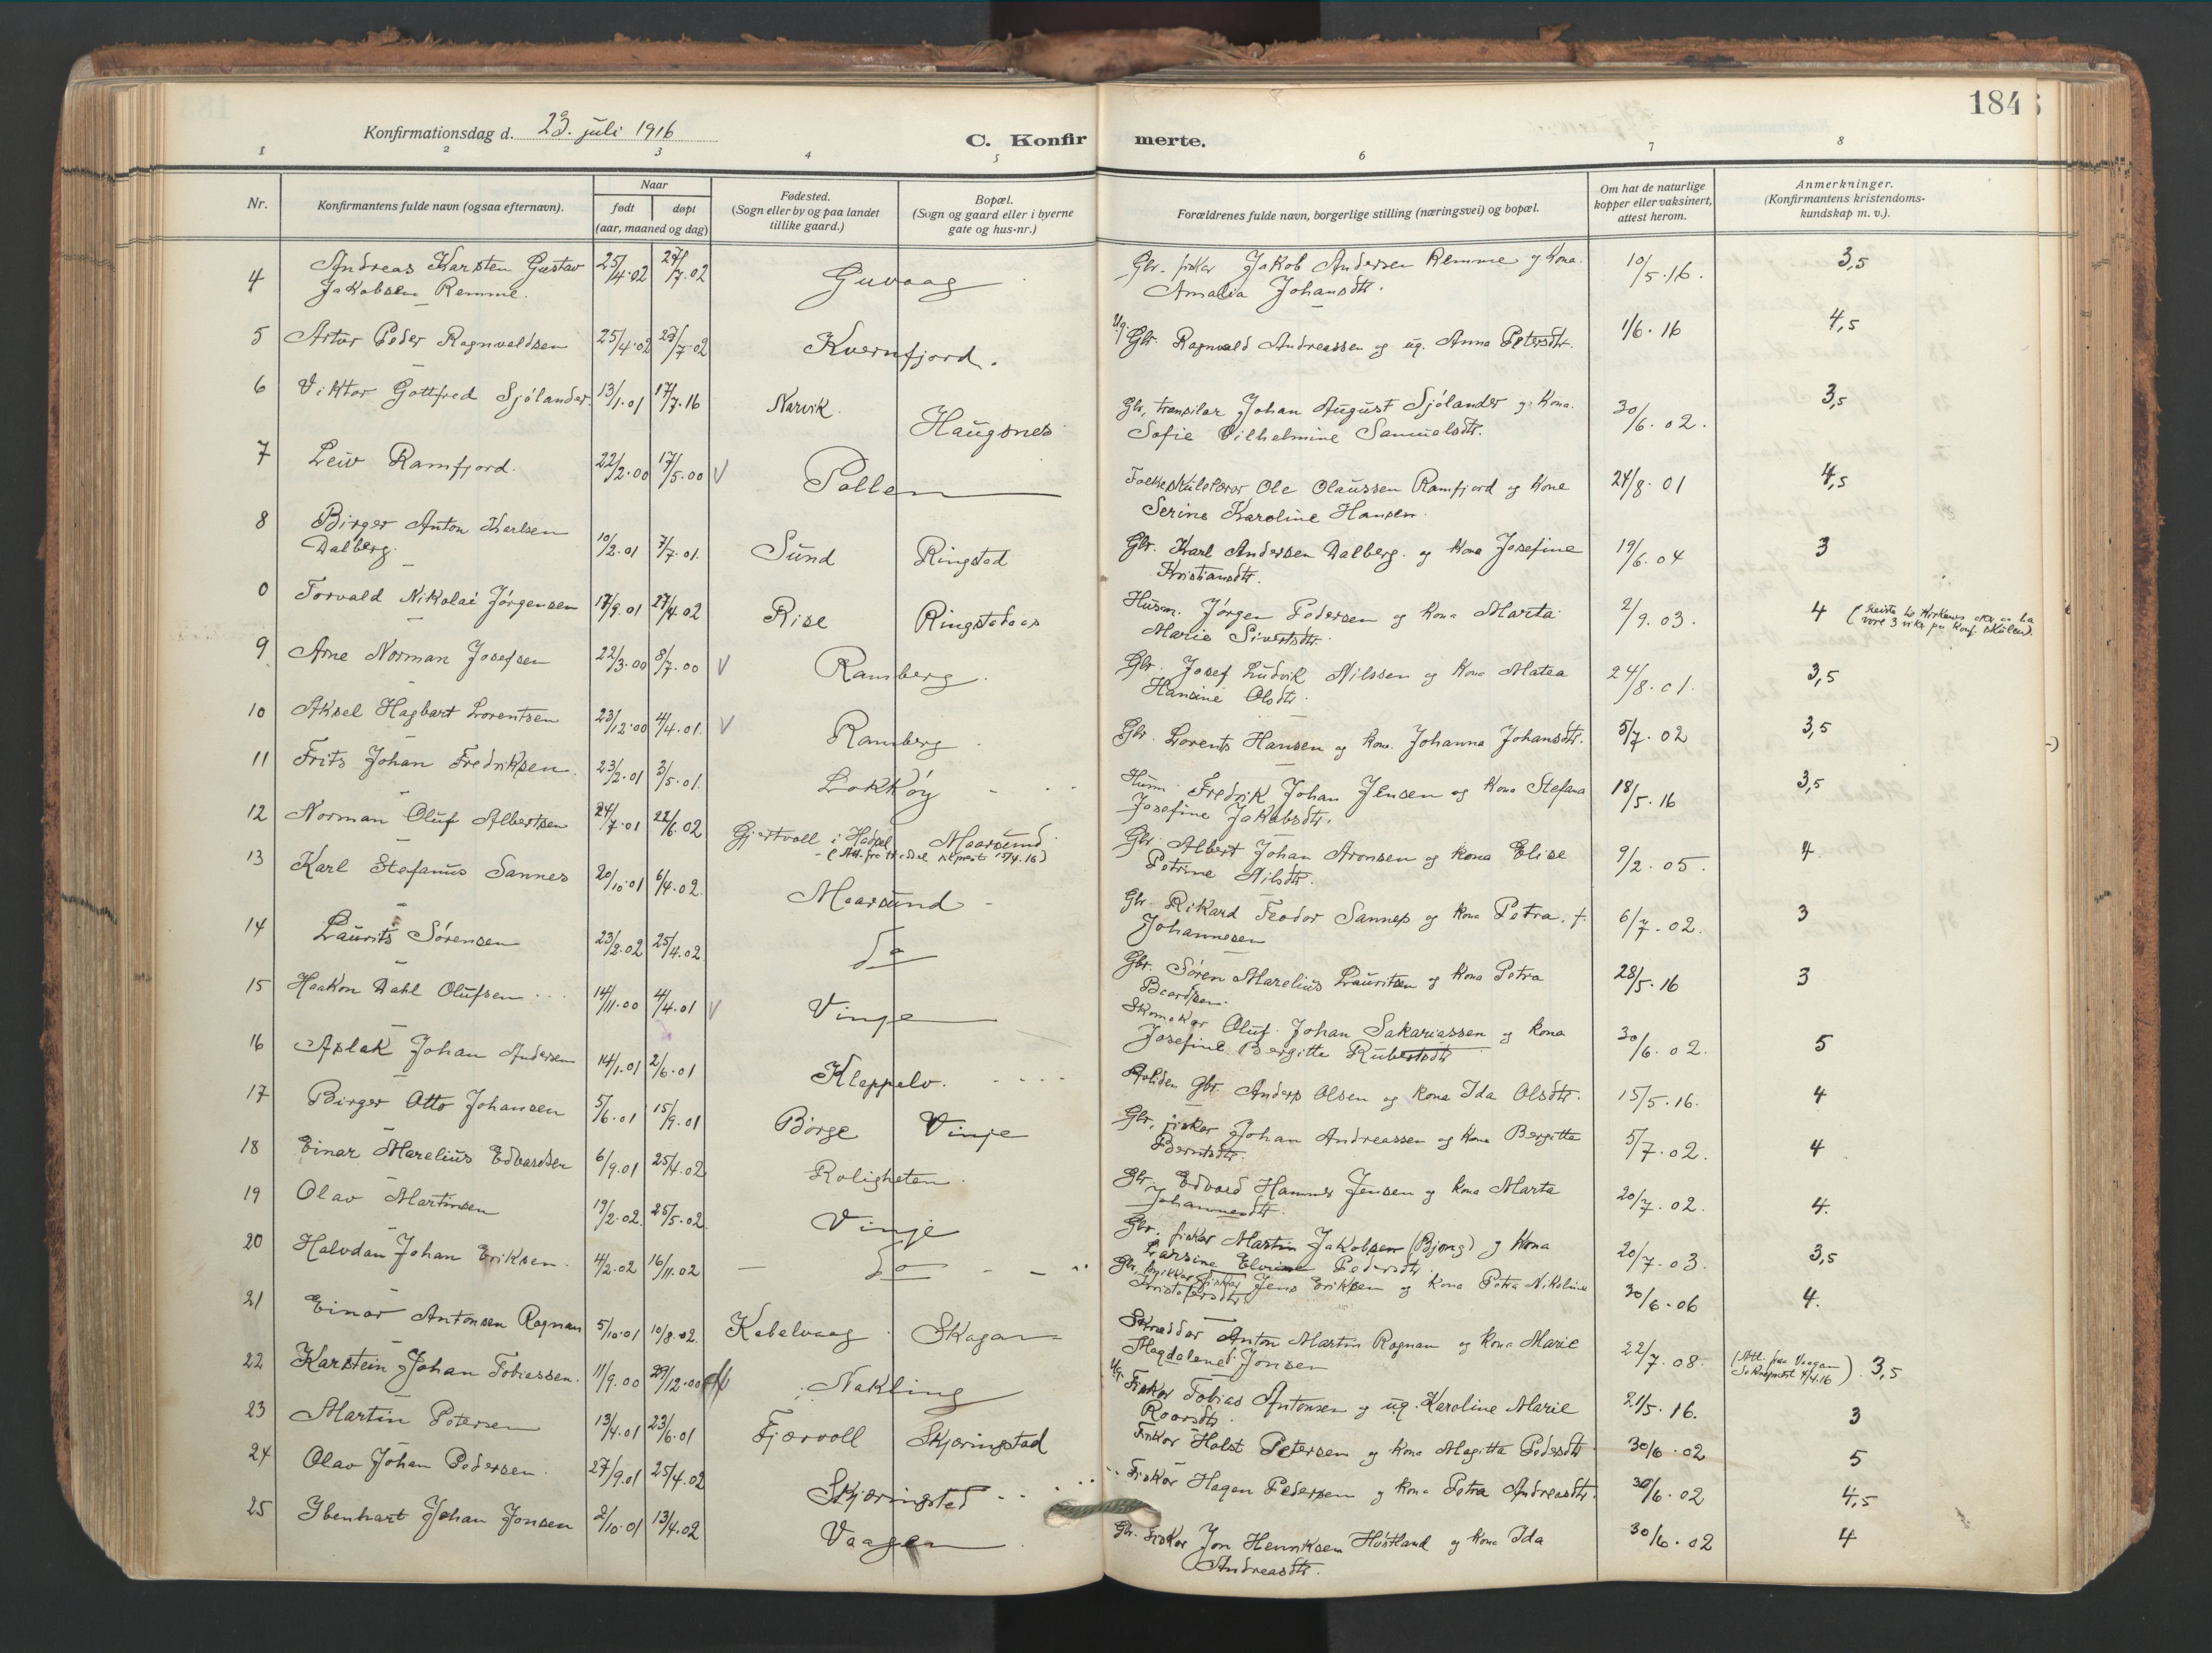 184
Konfirmationsdag d. 23. juli 1916
C. Konfirmerte.
1 2 3 4 5 6 7 8
Nr. | Konfirmantens fulde navn (ogsaa efternavn). | Naar født | døpt (aar, maaned og dag) | Fødested. (Sogn eller by og paa landet tillike gaard.) | Bopæl. (Sogn og gaard eller i byerne gate og hus-nr.) | Forældrenes fulde navn, borgerlige stilling (næringsvei) og bopæl. | Om hat de naturlige kopper eller vaksinert, attest herom. | Anmerkninger. (Konfirmantens kristendomskundskap m. v.).
4 Andreas Karsten Gustav Jakobsen Remme. 25/4.02 27/7.02 Guvaag Gbr. fisker Jakob Andersen Remme og kona Amalia Johansdtr. 10/5.16. 3,5
5 Artur Peder Ragnvaldsen 25/4.02 27/7.02 Kvernfjord. Ug. Gbr. Ragnvald Andreassen og ug. Anna Petersdtr. 1/6.16 4,5
6 Viktor Gottfred Sjölander 13/1.01 17/7.16 Narvik. Haugsnes Gbr, transilar Johan August Sjölander og kona. Sofie Vilhelmine Samuelsdtr. 30/6.02. 3,5
7 Leiv Ramfjord. 22/2.00 17/5.00 V Pollen Folkeskulelærar Ole Olaussen Ramfjord og kone Serine Karoline Hansen. 24/8.01 4,5
8 Birger Anton Karlsen Dalberg. 10/2.01 7/7.01. Sund Ringstad Gbr. Karl Andersen Dalberg. og kona Josefine Kristiansdtr. 19/6.04 3
0 Torvald Nikolai Jörgensen 17/9.01 27/4.02 Rise Ringstadaas Husm. Jörgen Pedersen og kona Marta Marie Sivertsdtr. 2/9.03. 4 (reiste te Kirkenes og ha vore 3 vikr paa konf. skulen).
9 Arne Norman Josefsen 22/3.00 8/7.00 V Ramberg. Gbr. Josef Ludvik Nilssen og kona Matea Hansine Olsdtr. 24/8.01. 3,5
10 Aksel Hagbart Lorentsen 23/12.00 4/4.01. V Ramberg Gbr. Lorents Hansen og kona Johanna Johansdtr. 5/7.02 3,5
11 Frits Johan Fredriksen. 23/2.01 3/5.01. Lokköy Husm. Fredrik Johan Jensen og kona Stefana Josefine Jakobsdtr. 18/5.16 3,5
12 Norman Oluf Albertsen 24/7.01 22/6.02 Gjertvoll i Hadsel Maarsund (Att. fra Hadsel 17/4.16) Gbr. Albert Johan Aronsen og kona Elise Petrine Nilsdtr. 9/2.05. 4.
13 Karl Stefanus Sannes 20/10.01 6/4.02. Maarsund Gbr. Rikard Teodor Sannes og kona Petra. f. Johannesen 6/7.02. 3
14 Laurits Sörensen 23/2.02 25/4.02 do Gbr. Sören Marelius Lauritsen og kona Petra Beardsen. 28/5.16 3
15 Haakon Dahl Olufsen 14/11.00 4/4.01 V Vinje Skomakar Oluf Johan Sakariassen og kona Josefine Bergitte Rubertsdtr 30/6.02. 5
16 Aslak Johan Andersen 14/1.01 2/6.01 Kleppelv. Gbr. Anders Olsen og kona Ida Olsdtr. 15/5.16. 4
17 Birger Otto Johansen 5/6.01 15/9.01 Börge Vinje Gbr, fisker Johan Andreassen og kona Bergitta Berntsdtr. 5/7.02. 4
18 Einar Marelius Edvardsen 6/9.01 25/4.02 Roligheten. Gbr. Edvard Hammer Jensen og kona Marta Johannesdtr. 20/7.02. 4.
19 Olav Martinsen 19/2.02. 25/5.02. Vinje Gbr. fisker Martin Jakobsen (Bjong) og kona Larsine Elvine Pedersdtr. 20/7.03. 3,5
20 Halvdan Johan Eriksen. 4/2.02 16/11.02 — do Gbr. fisker Jens Eriksen og kona Petra Nikoline Kristofersdtr 30/6.06 4.
21 Einar Antonsen Rognan 5/10.01 10/8.02. Kabelvaag Skagan Skreddar Anton Martin Rognan og kona Marie Magdalene f. Jonsen 22/7.08. (Att. fra Vaagan Soknepræst 4/4.16). 3,5
22 Karstein Johan Tobiassen. 11/9.00 29/12.00 Nakling Ug. Fisker Tobias Antonsen og ug. Karoline Marie Roarsdtr. 21/5.16. 3
23 Martin Petersen 13/4.01 23/6.01 Fjærvoll Skjæringstad Fisker Holst Petersen og kona Magitta Pedersdtr 30/6.02 5
24 Olav Johan Pedersen. 27/9.01 25/4.02 Skjæringstad Fisker Hagen Pedersen og kona Petra Andreasdtr. 30/6.02 4,5
25 Ibenhart Johan Jonsen 2/10.01 13/4.02 Vaagen Gbr. fisker Jon Henriksen Höstland og kona Ida Andreasdtr. 30/6.02 4